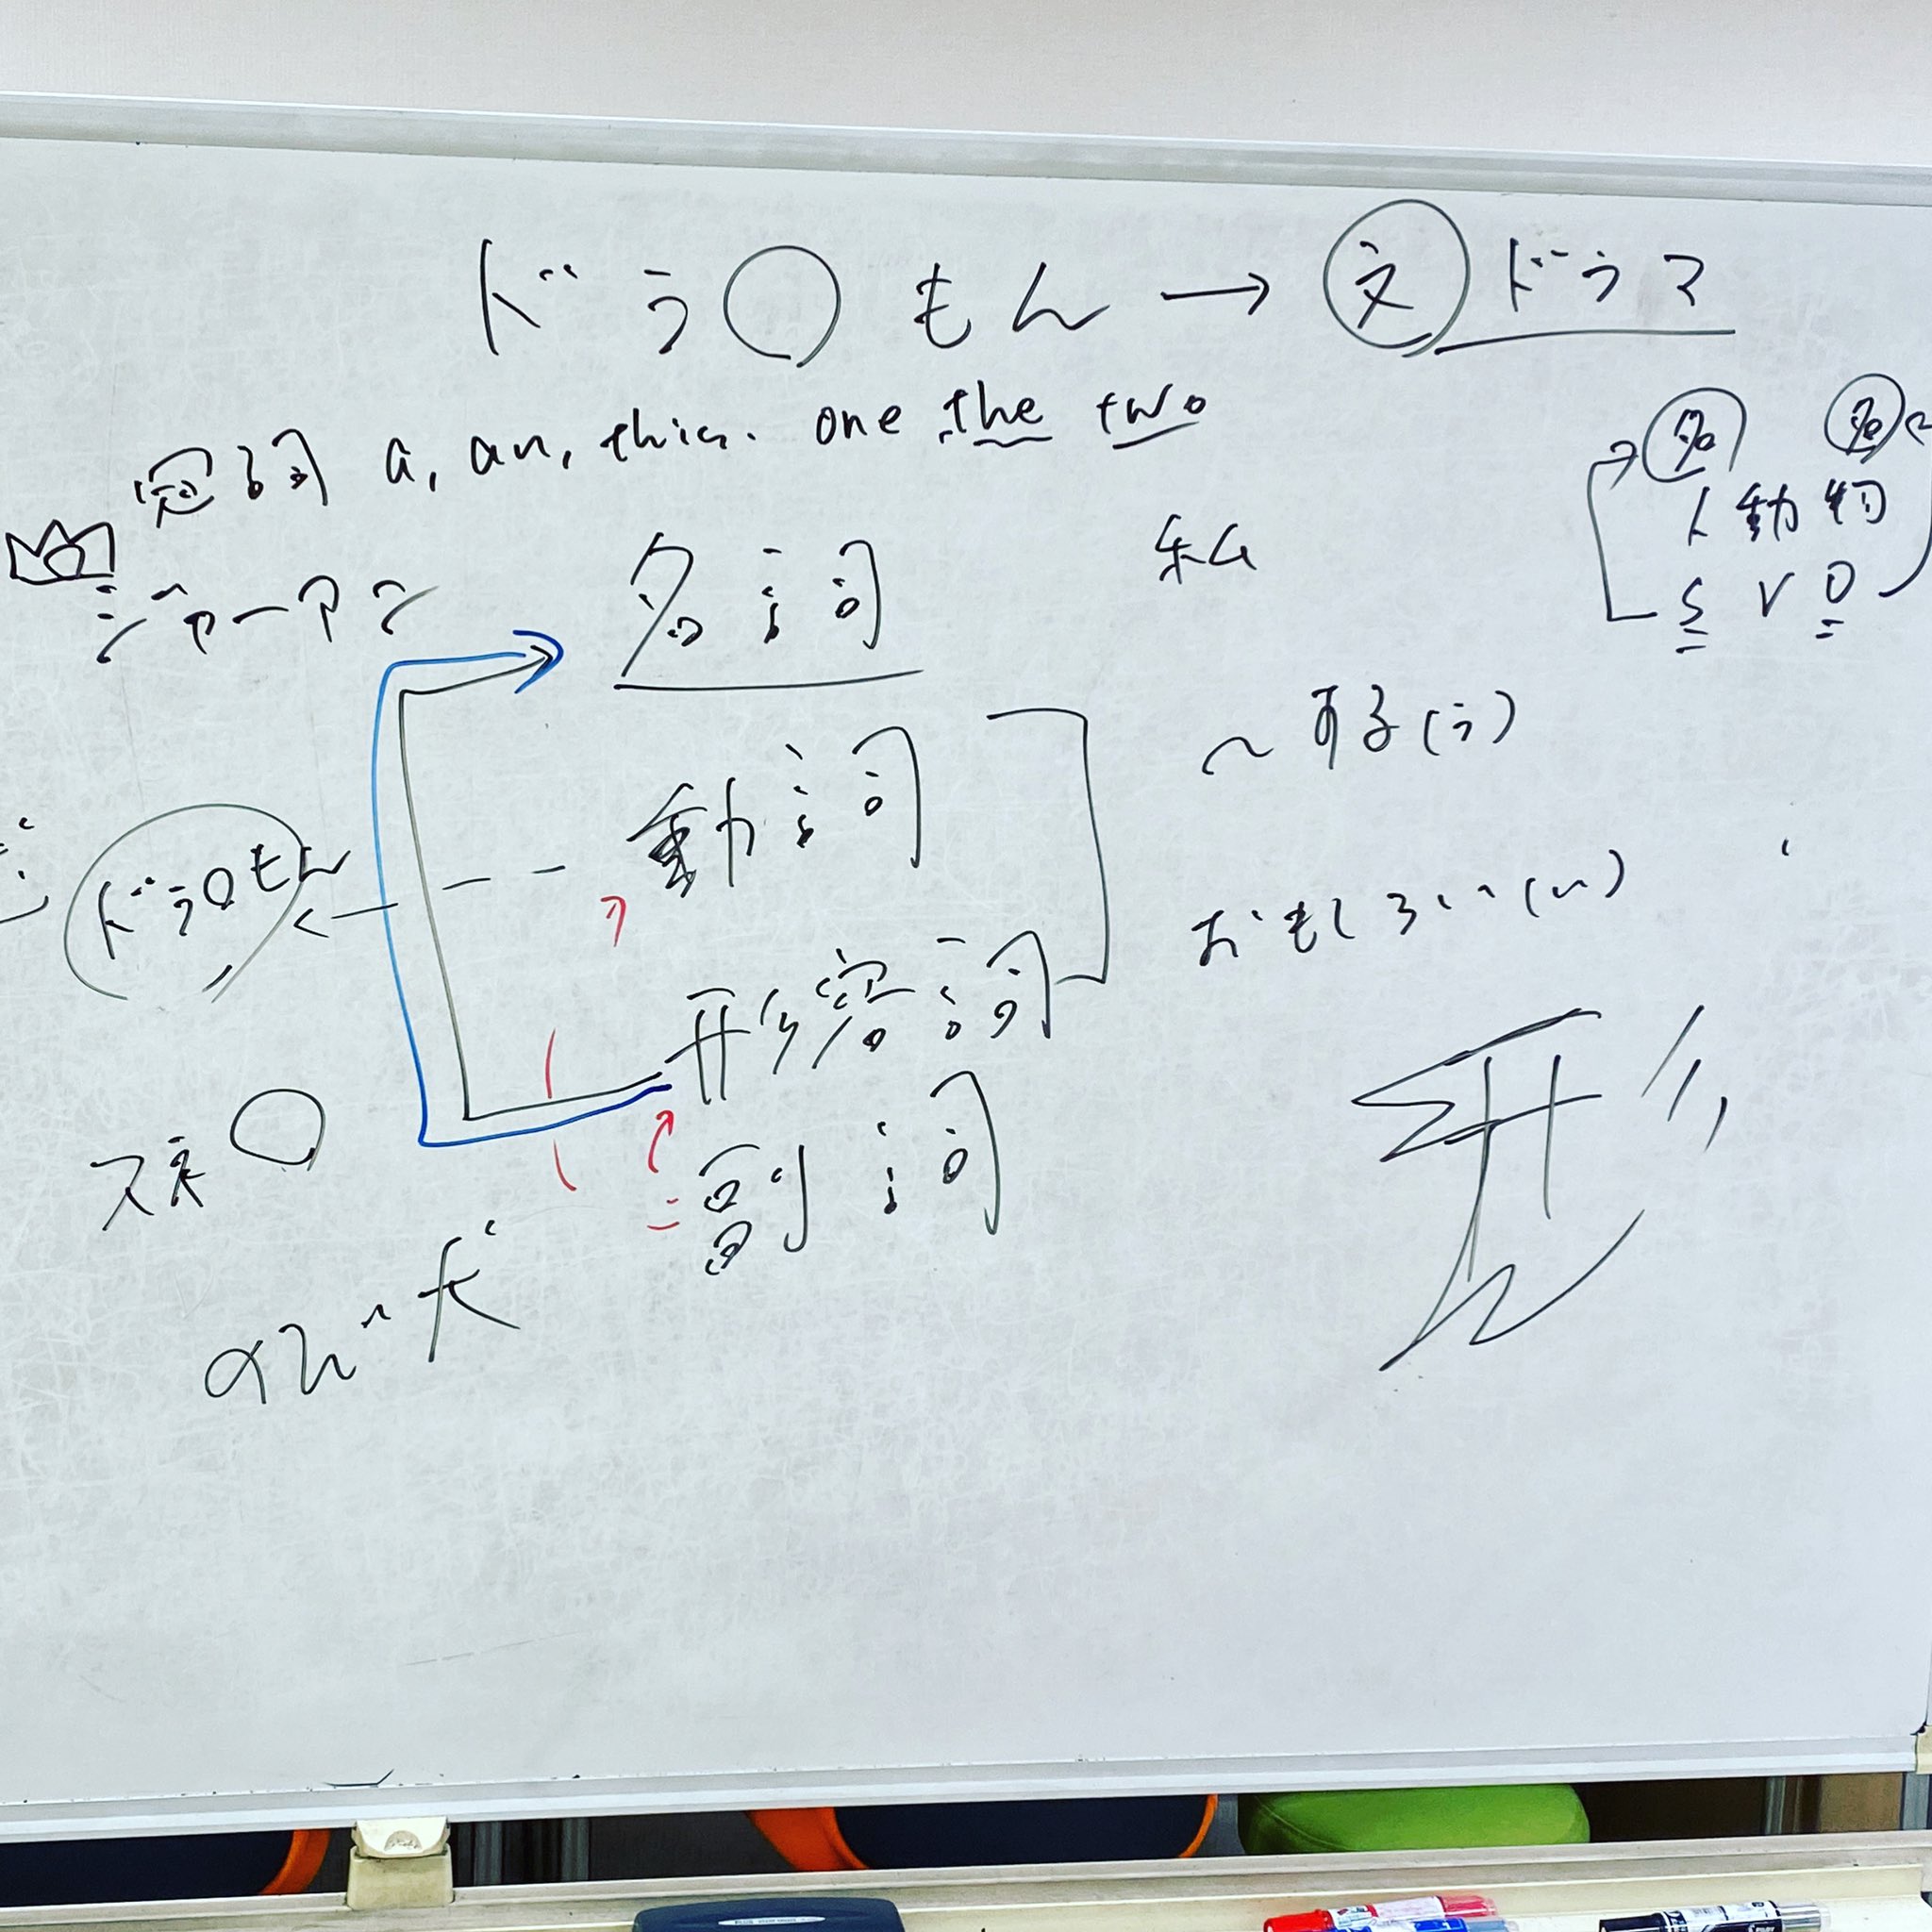 ドラ○もん → 文 ドラマ
冠詞 a, an, this. one the two
名 名
人 動 物
S V O
ジャーアン
名詞 私
動詞 ～する(う)
ドラ○もん
形容詞 おもしろい(い)
形
副詞
スネ○